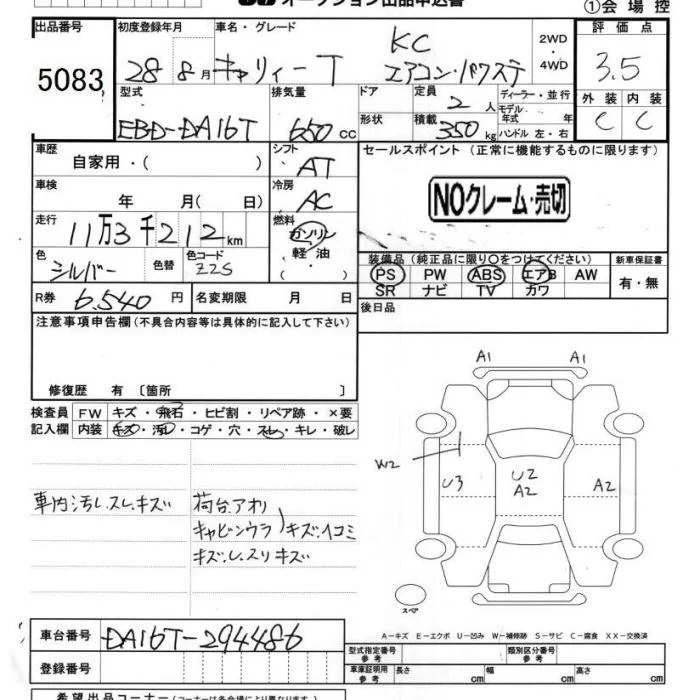 オークション出品申込書
①会場控
出品番号 初度登録年月 車名・グレード 評価点
5083 28年8月 キャリィーT KC エアコン・パワステ 2WD・4WD 3.5
型式 排気量 ドア 定員 ディーラー・並行 外装 内装
EBD-DA16T 650cc 2人 モデル年式 年 C C
形状 積載 350kg ハンドル 左・右
車歴 シフト セールスポイント (正常に機能するものに限ります)
自家用・( ) AT
車検 冷房
年 月(日) AC
NOクレーム・売切
走行 燃料
11万3千212km ガソリン・軽油・( )
色 色替 色コード 装備品 (純正品に限り○をつけてください) 新車保証書
シルバー Z2S PS PW ABS エアB AW 有・無
SR ナビ TV カワ
R券 6.540円 名変期限 月 日 後日品
注意事項申告欄(不具合内容等は具体的に記入して下さい)
修復歴 有〔箇所 〕
検査員 FW キズ・飛石・ヒビ割・リペア跡・×要
記入欄 内装 キズ・汚レ・コゲ・穴・スレ・キレ・破レ
A1 A1
W2
U3 U2 A2 A2
車内汚レ.スレ.キズ 荷台.アオリ
キャビンウラ キズ.イコミ
キズ.レ.スリキズ
スペア
A-キズ E-エクボ U-凹み W-補修跡 S-サビ C-腐食 XX-交換済
車台番号 DA16T-294486 型式指定番号 参考 類別区分番号 参考
登録番号 車庫証明用 参考 長さ cm 幅 cm 高さ cm
希望出品コーナー(コーナーは各会場により異なります)